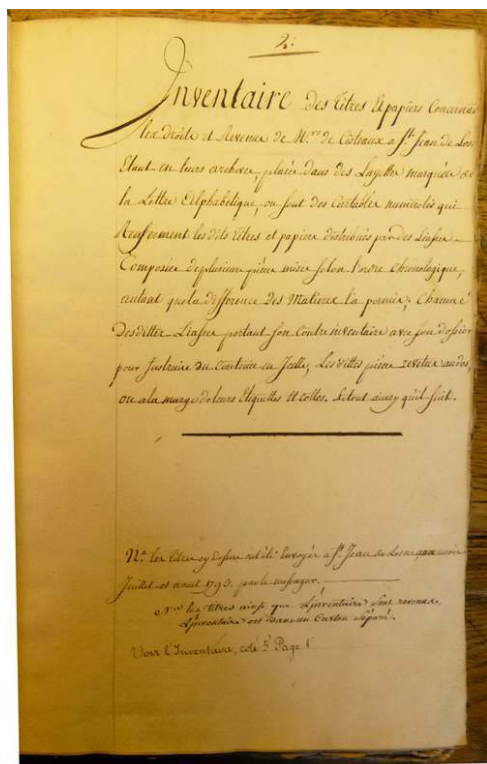 2.
Inventaire des titres Et papiers Concernans
les droits et Revenus de M.rs de Citeaux a St. Jean de Lone
Etant en leurs archives, placés dans des Layettes marquées de
la Lettre Alphabetique, ou sont des Cartables numerotés qui
Renferment les dits titres et papiers distribués par des Liasses
Composées de plusieurs pièces mises selon l'ordre chronologique,
autant que la difference des Matieres l'a permis; Chacune
Desdittes Liasses portant son Contre inventaire avec son dossier
pour Instruire du Contenu en Icelle; Les dittes pieces revetues au dos,
ou a la marge de leurs Etiquettes et cottes. Le tout ainsy qu'il suit.
N.a les titres cy dessus ont été Envoyés a St. Jean de Losne
Juillet et aout 1793. par le messager.
N.a les titres ainsi que L'inventaire sont revenus,
L'inventaire est dans un Carton séparé.
Voir l'Inventaire, coté 3. Page 1